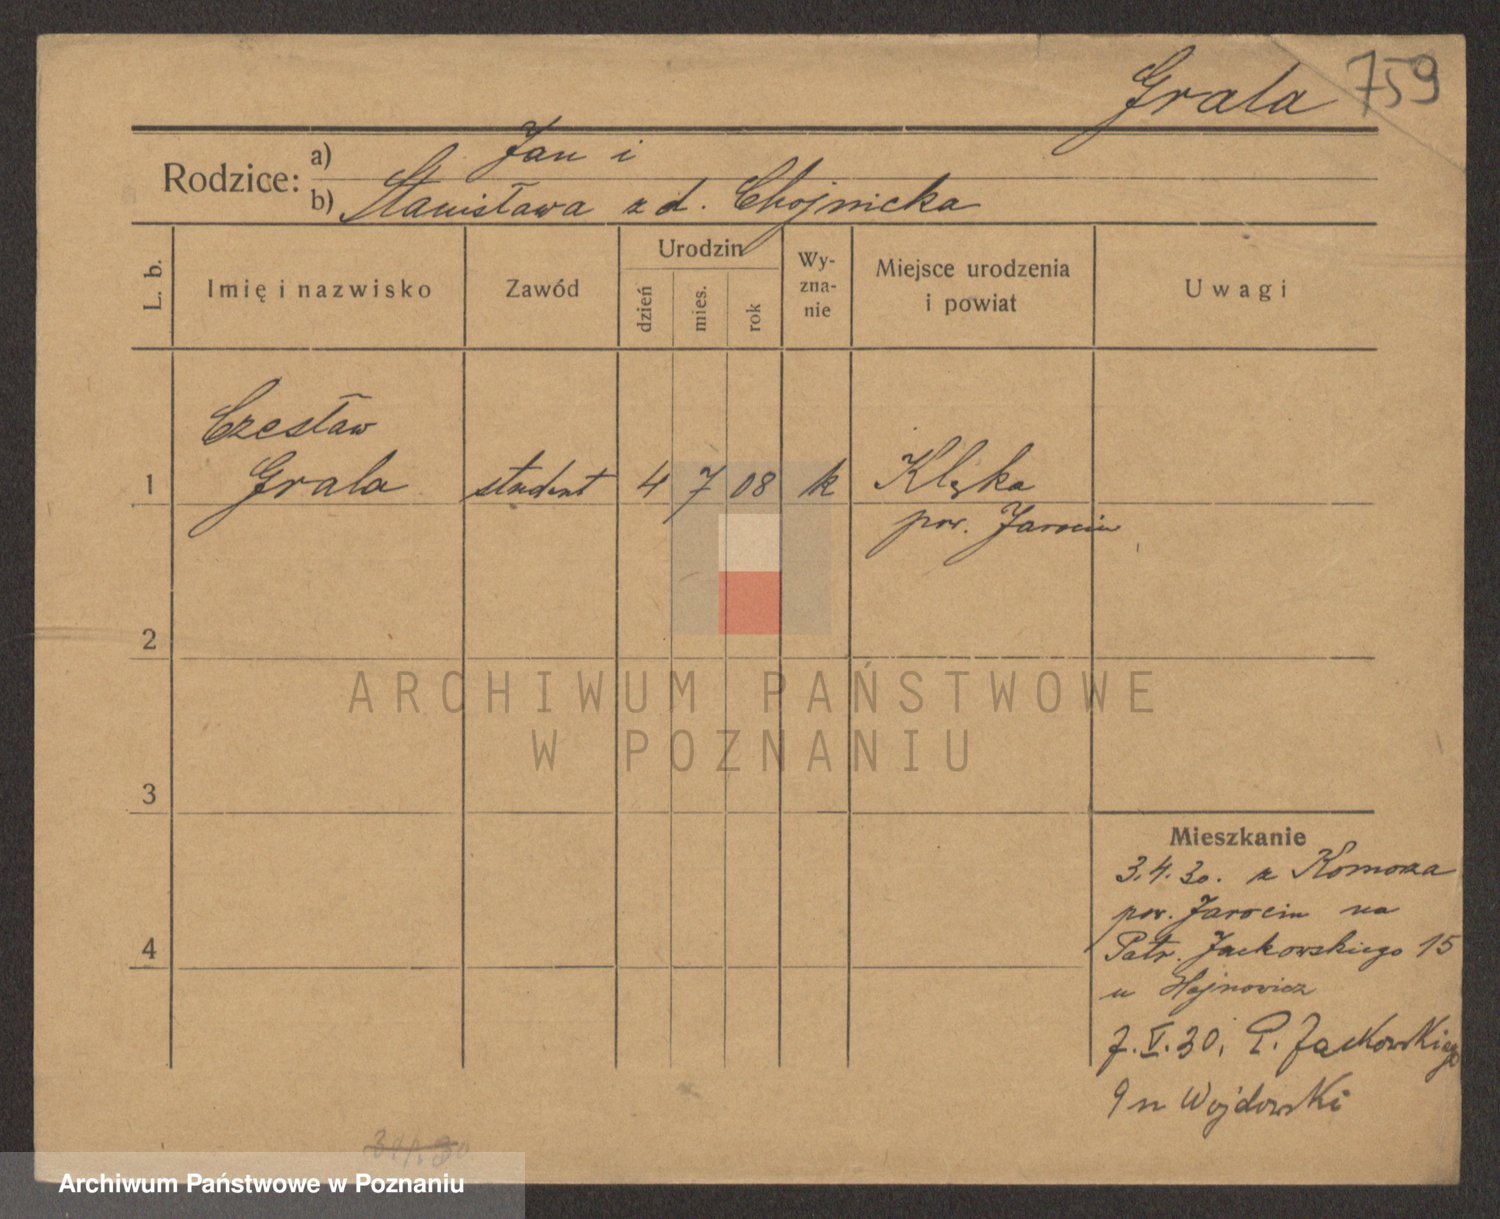 Grala 759
Rodzice:
a) Jan i
b) Stanisława z d. Chojnicka
L. b.
Imię i nazwisko
Zawód
Urodzin
dzień
mies.
rok
Wy-
zna-
nie
Miejsce urodzenia
i powiat
Uwagi
Czesław
1 Grala student 4 7 08 k Klęka
pow. Jarocin
2
3
4
Mieszkanie
3.4.30. z Komorza
pow. Jarocin na
Patr. Jackowskiego 15
u
7.V.30. P. Jackowskiego
9 u Wojdowski
ARCHIWUM PAŃSTWOWE
W POZNANIU
Archiwum Państwowe w Poznaniu